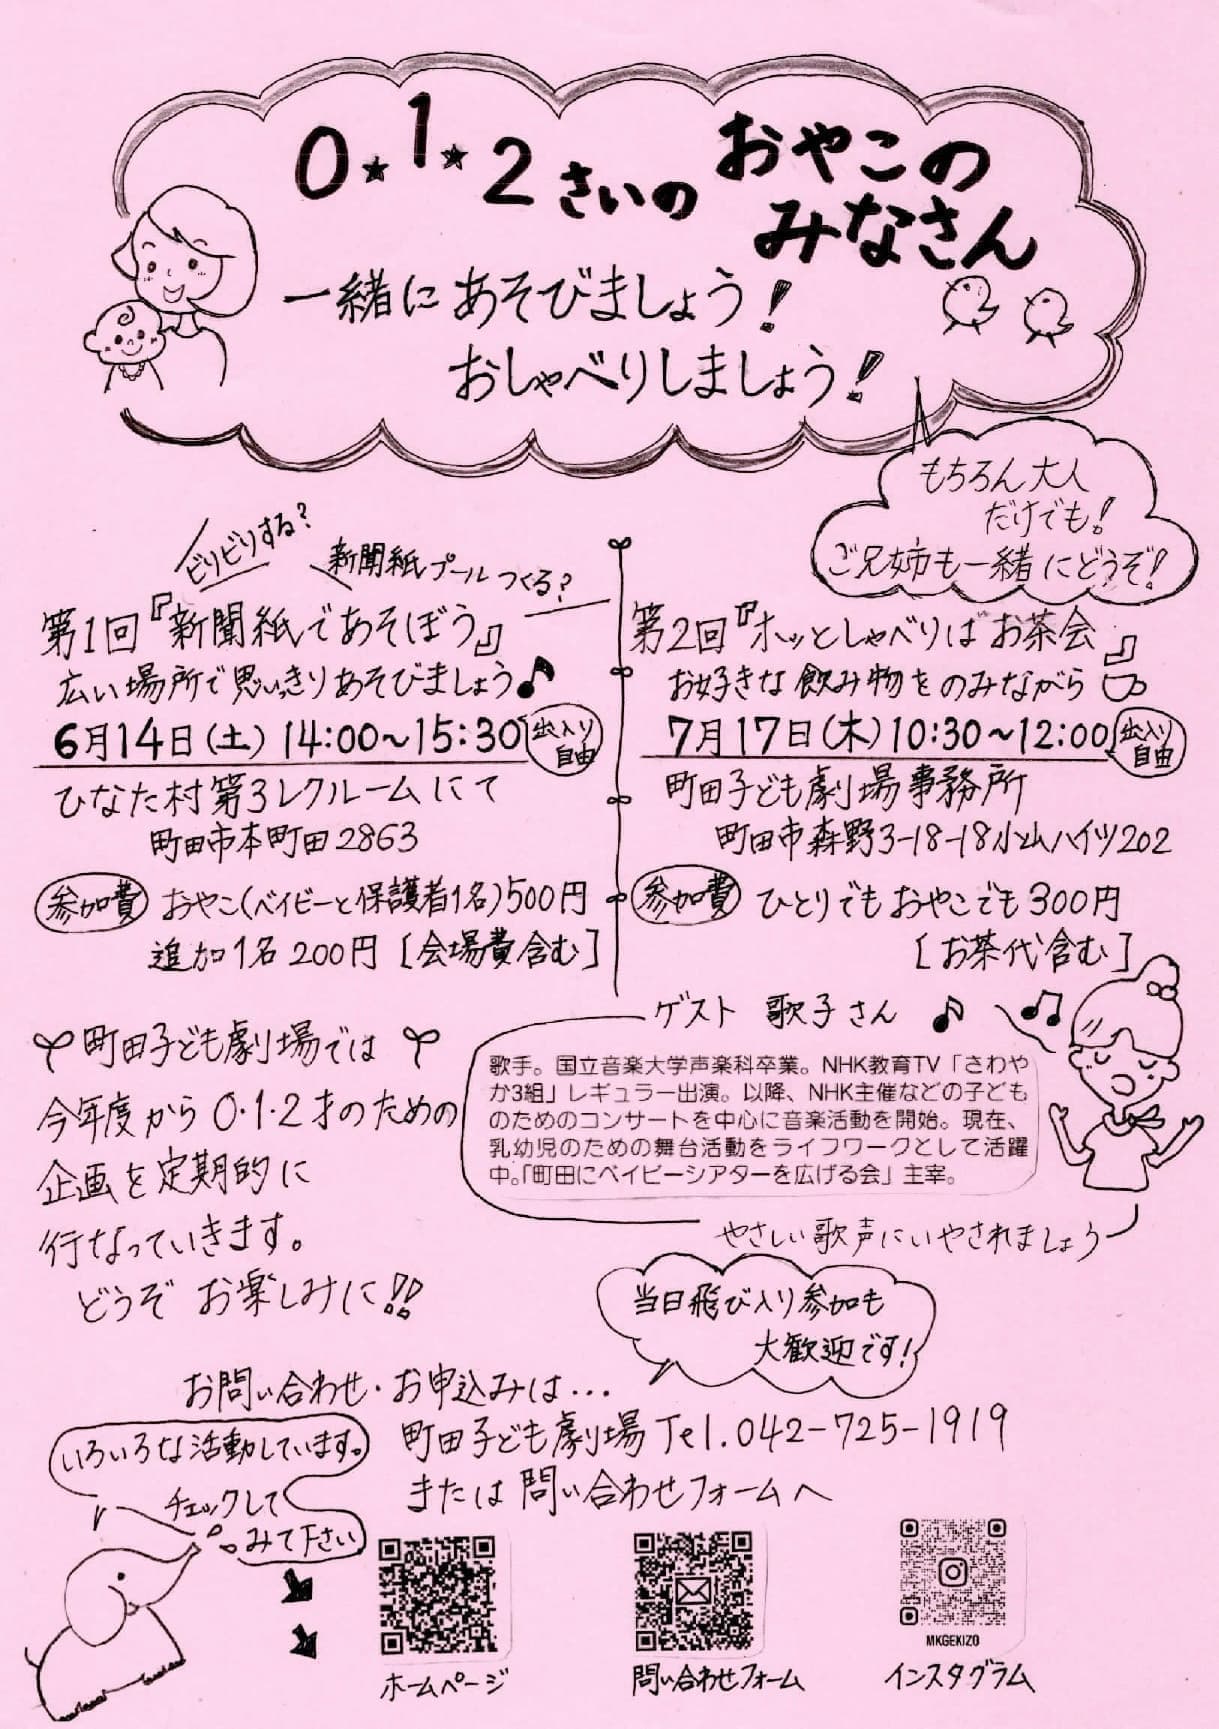 0★1★2さいの おやこの
みなさん
一緒にあそびましょう!
おしゃべりしましょう!
もちろん大人
だけでも!
ご兄姉も一緒にどうぞ!
ビリビリする?
新聞紙プールつくる?
第1回『新聞紙であそぼう』
広い場所で思いっきりあそびましょう♪
6月14日(土) 14:00~15:30 出入り自由
ひなた村第3レクルームにて
町田市本町田2863
参加費 おやこ(ベイビーと保護者1名)500円
追加1名200円 [会場費含む]
第2回『ホッとしゃべりば お茶会』
お好きな飲み物をのみながら
7月17日(木) 10:30~12:00 出入り自由
町田子ども劇場事務所
町田市森野3-18-18小山ハイツ202
参加費 ひとりでもおやこでも300円
[お茶代含む]
町田子ども劇場では
今年度から0・1・2才のための
企画を定期的に
行なっていきます。
どうぞお楽しみに!!
ゲスト 歌子さん ♪
歌手。国立音楽大学声楽科卒業。NHK教育TV「さわや
か3組」レギュラー出演。以降、NHK主催などの子ども
のためのコンサートを中心に音楽活動を開始。現在、
乳幼児のための舞台活動をライフワークとして活躍
中。「町田にベイビーシアターを広げる会」主宰。
やさしい歌声にいやされましょう
当日飛び入り参加も
大歓迎です!
お問い合わせ・お申込みは...
町田子ども劇場 Tel.042-725-1919
または問い合わせフォームへ
いろいろな活動しています。
チェックして
みて下さい
ホームページ
問い合わせフォーム
MKGEKIZO
インスタグラム